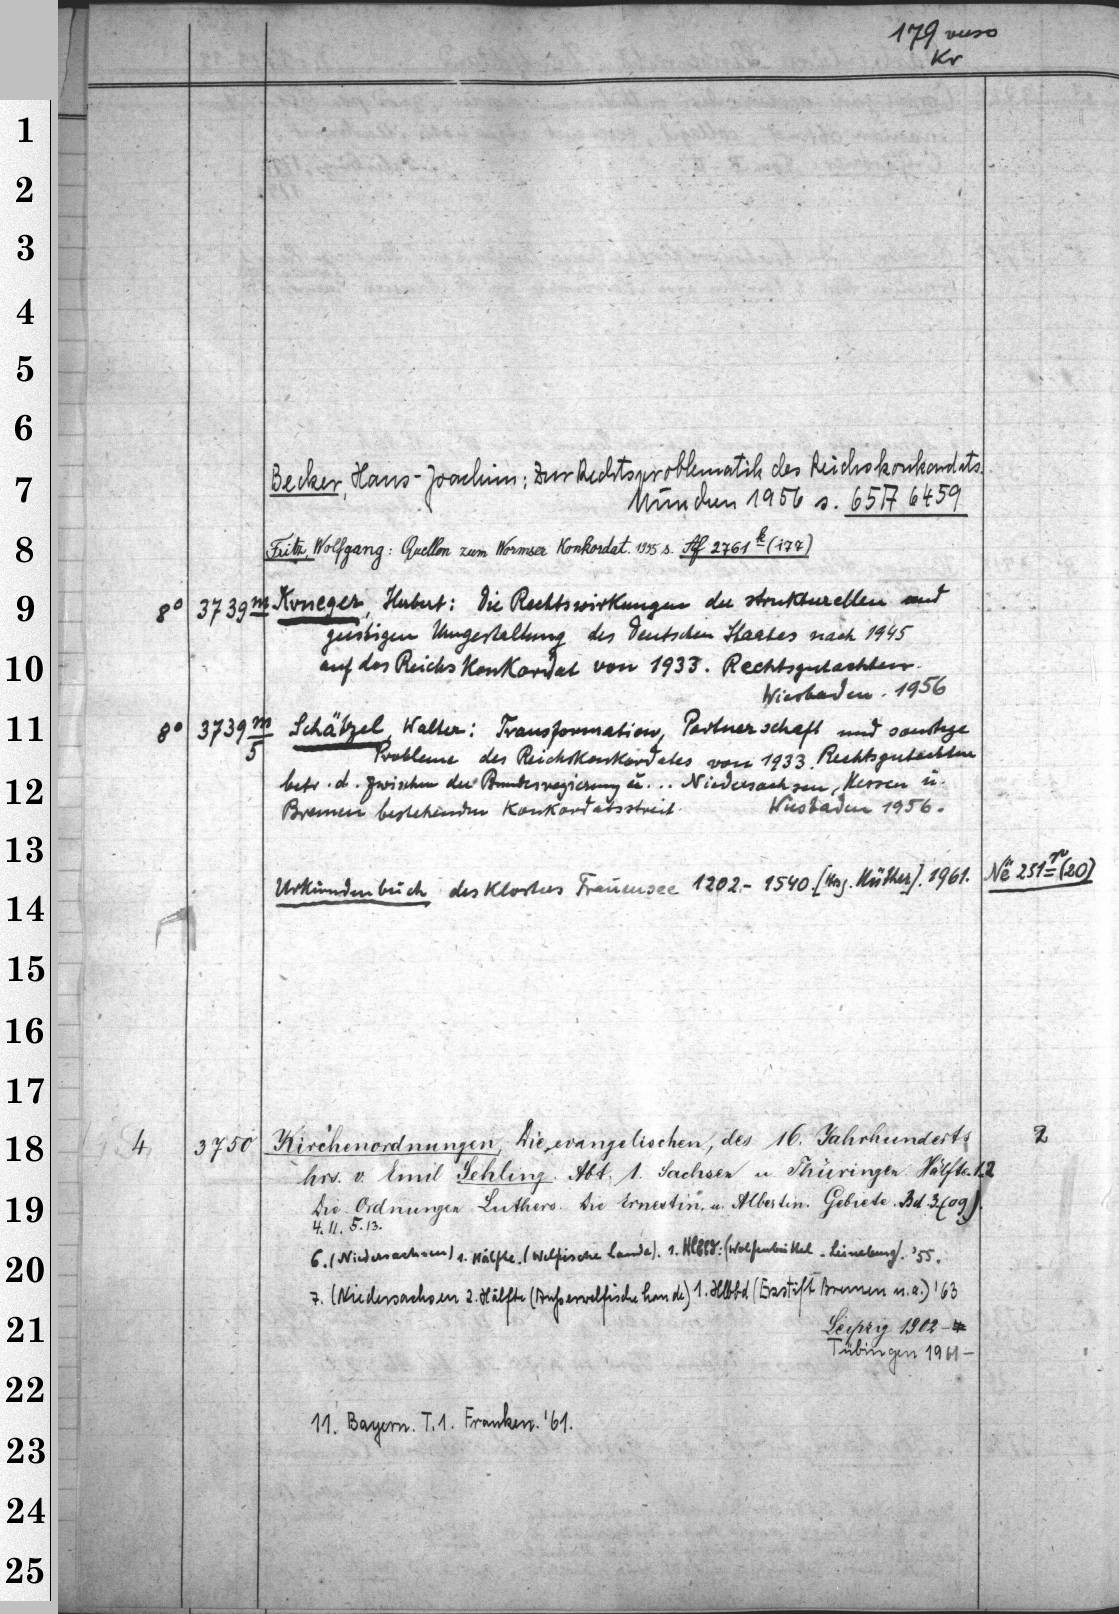 179 verso
Kr
1
2
3
4
5
6
Becker, Hans-Joachim: Zur Rechtsproblematik des Reichskonkordats.
7
München 1956 s. 65 A 6459
8 Fritz, Wolfgang: Quellen zum Wormser Konkordat. 1955 s. Af 2761 k (177)
9 8° 3739 m Krueger, Herbert: Die Rechtswirkungen der strukturellen und
geistigen Umgestaltung des Deutschen Staates nach 1945
10 auf das Reichskonkordat von 1933. Rechtsgutachten.
Wiesbaden. 1956
11 8° 3739 m/5 Schätzel, Walter: Transformation, Partnerschaft und sonstige
Probleme des Reichskonkordates von 1933. Rechtsgutachten
12 betr. d. zwischen der Bundesregierung u. ... Niedersachsen, Hessen u.
Bremen bestehenden Konkordatsstreit. Wiesbaden 1956.
13
Urkundenbuch des Klosters Frauensee 1202-1540. [Hrsg. Küther]. 1961. Në 251 n (20)
14
15
16
17
18 4 3750 Kirchenordnungen, Die evangelischen, des 16. Jahrhunderts 2
hrs. v. Emil Sehling. Abt. 1. Sachsen u Thüringen Hälfte. 1.2
19 Die Ordnungen Luthers. Die Ernestin. u. Albertin. Gebiete. Bd 3 (09).
4. 11. 5. 13.
20 6. (Niedersachsen) 1. Hälfte. (Welfische Lande). 1. Hlbbd: (Wolfenbüttel - Lüneburg). '55.
7. (Niedersachsen 2. Hälfte (Außerwelfische Lande) 1. Hlbbd (Erzstift Bremen u.a.) '63
21 Leipzig 1902-
Tübingen 1961-
22
11. Bayern. T.1. Franken. '61.
23
24
25